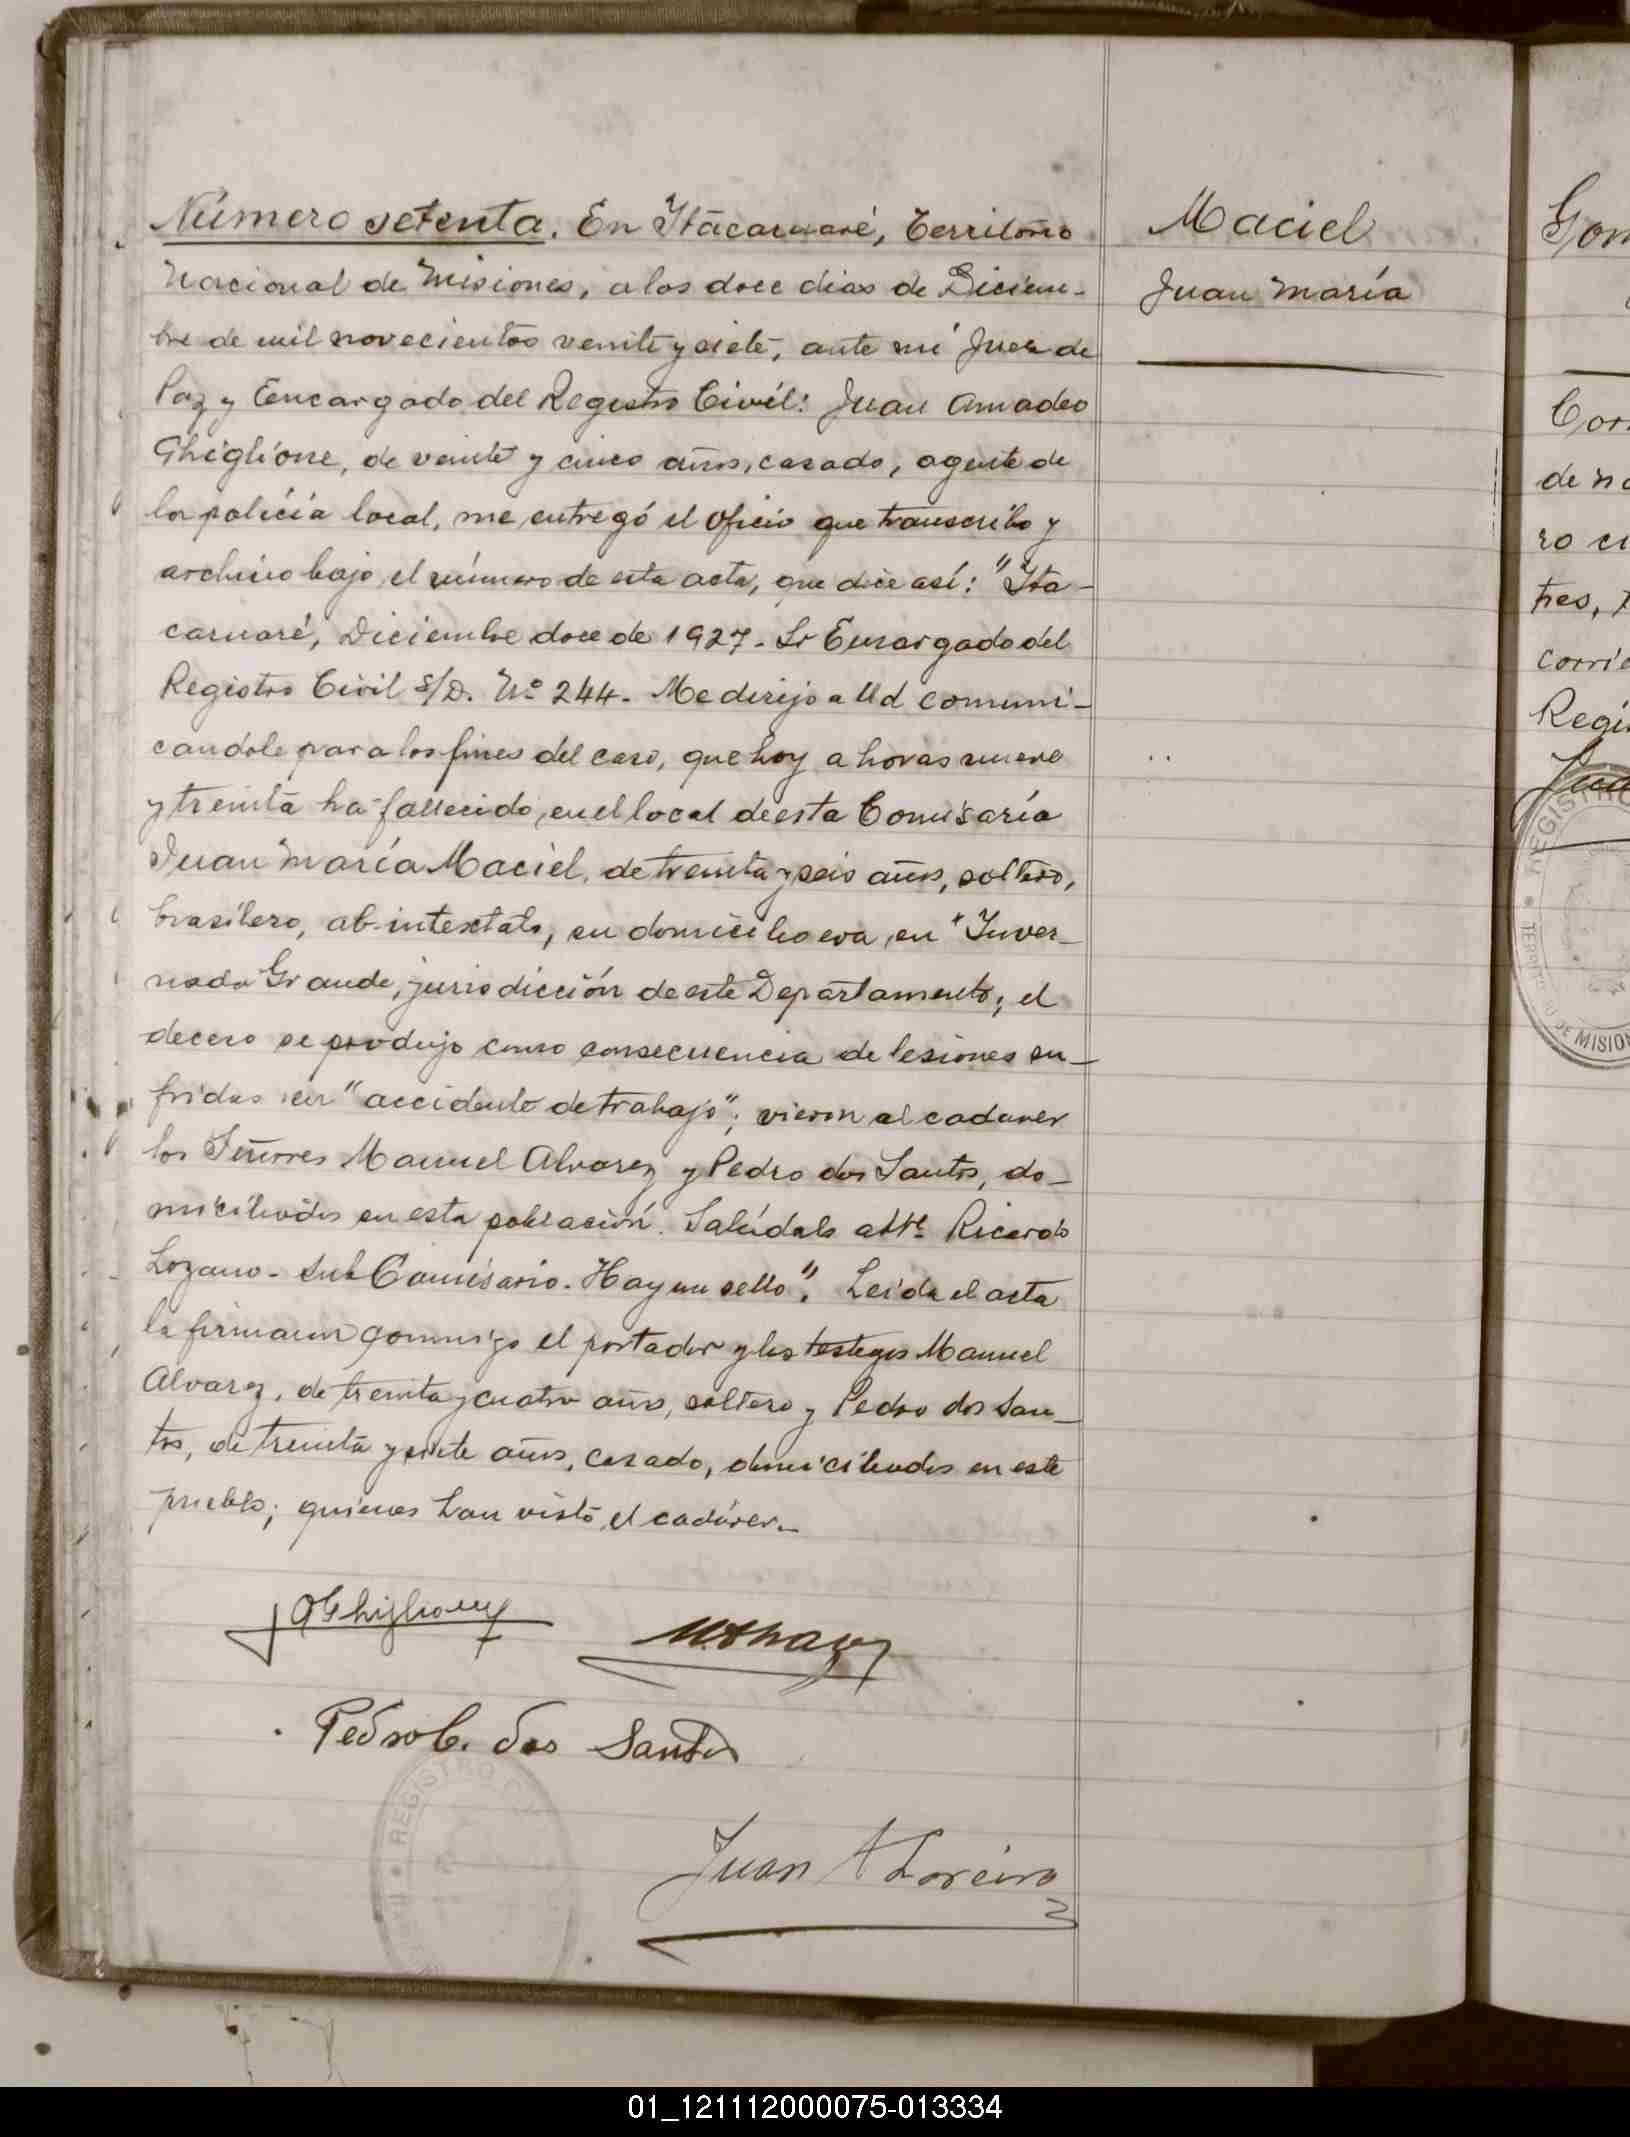 Número setenta. En Itacaruaré, Territorio
Nacional de Misiones, a los doce dias de Diciem-
bre de mil novecientos veinte y siete, ante mi Juez de
Paz y Encargado del Registro Civil: Juan Amadeo
Ghiglione, de veinte y cinco años, casado, agente de
la policía local, me entregó el oficio que transcribo y
archivo bajo el número de esta acta, que dice así: "Ita-
caruaré, Diciembre doce de 1927. Sr Encargado del
Registro Civil S/D. Nº 244. Me dirijo a Ud comuni-
candole para los fines del caso, que hoy a horas nueve
y treinta ha fallecido, en el local de esta Comisaría
Juan María Maciel, de treinta y seis años, soltero,
brasilero, ab-intestato, su domicilio era, en "Inver-
nada Grande, jurisdicción de este Departamento; el
deceso se produjo como consecuencia de lesiones su-
fridas en "accidente de trabajo"; vieron al cadaver
los Señores Manuel Alvarez y Pedro dos Santos, do-
miciliados en esta población. Salúdale atte Ricardo
Lozano - Sub Comisario. Hay un sello". Leida el acta
la firmaron conmigo el portador y los testigos Manuel
Alvarez, de treinta y cuatro años, soltero y Pedro dos San-
tos, de treinta y siete años, casado, domiciliados en este
pueblo; quienes han visto el cadáver.-
JAGhiglione
MAlvarez
Pedro C. dos Santos
REGISTRO
Juan A Loreiro
Maciel
Juan María
Gom
Cor
de no
ro ci
tres,
corri
Regi
Jua
REGISTRO
TERRITORIO DE MISION
01_121112000075-013334